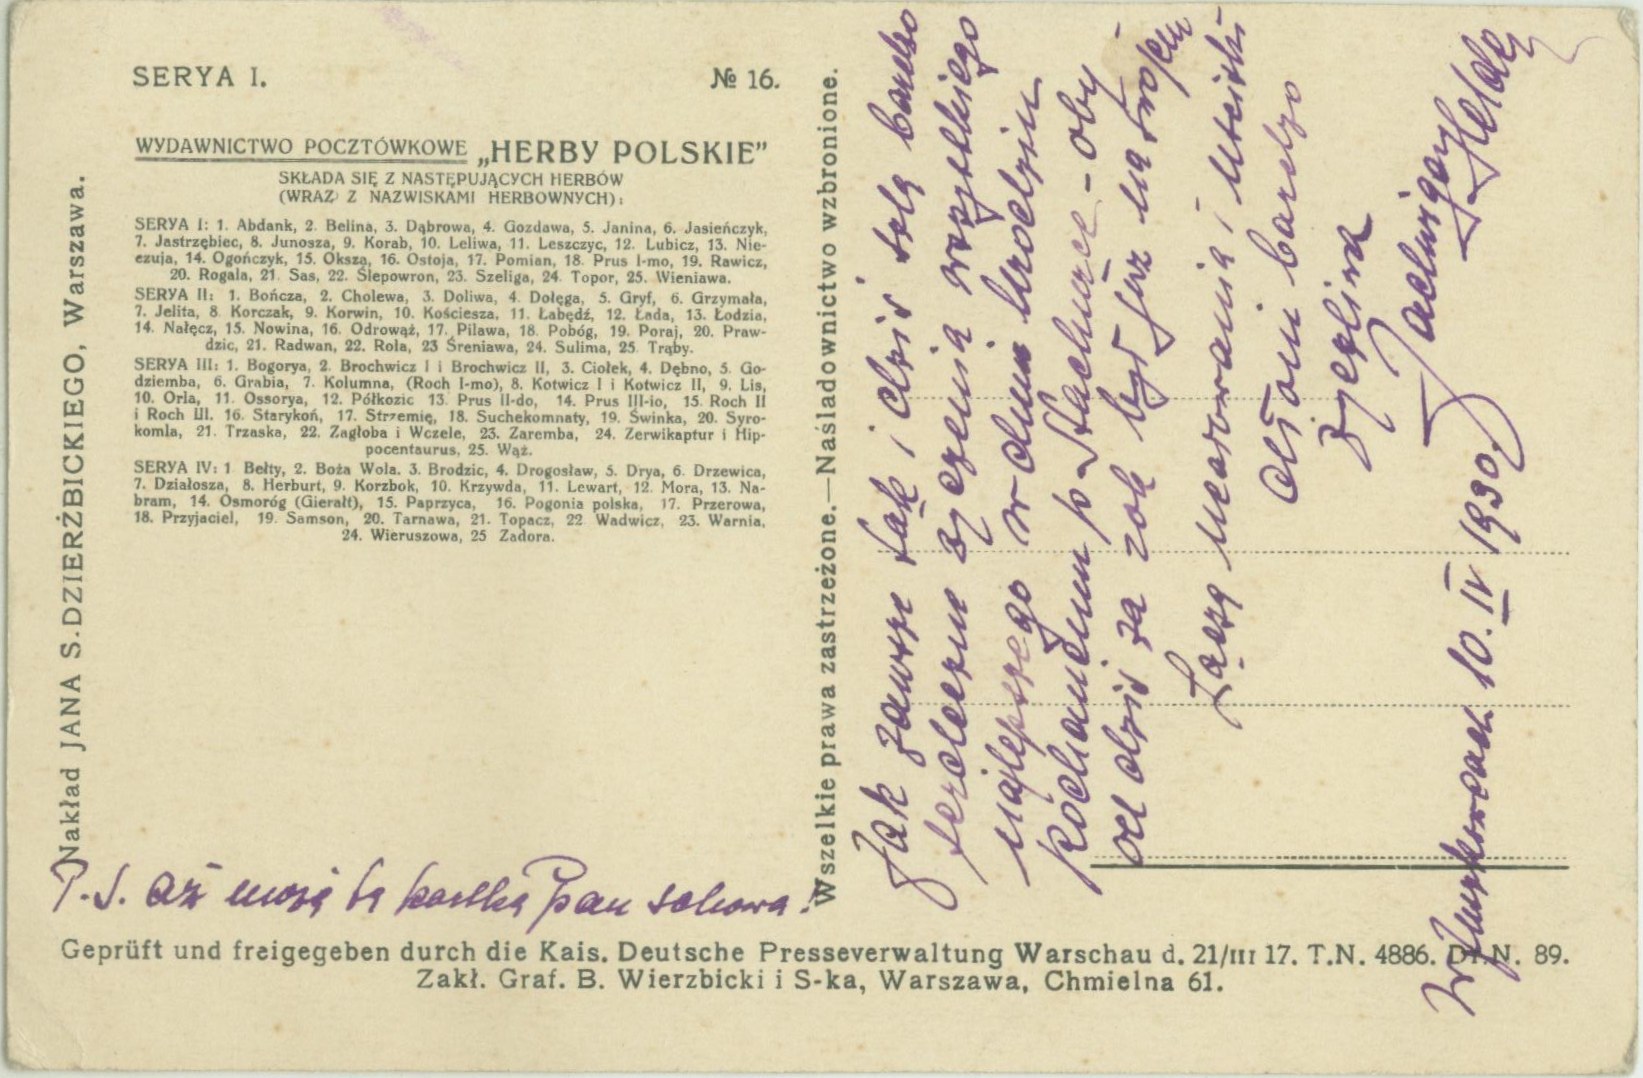 SERYA I.
№ 16.
WYDAWNICTWO POCZTÓWKOWE „HERBY POLSKIE”
SKŁADA SIĘ Z NASTĘPUJĄCYCH HERBÓW
(WRAZ Z NAZWISKAMI HERBOWNYCH):
SERYA I: 1. Abdank, 2. Belina, 3. Dąbrowa, 4. Gozdawa, 5. Janina, 6. Jasieńczyk,
7. Jastrzębiec, 8. Junosza, 9. Korab, 10. Leliwa, 11. Leszczyc, 12. Lubicz, 13. Nie-
czuja, 14. Ogończyk, 15. Oksza, 16. Ostoja, 17. Pomian, 18. Prus I-mo, 19. Rawicz,
20. Rogala, 21. Sas, 22. Ślepowron, 23. Szeliga, 24. Topor, 25. Wieniawa.
SERYA II: 1. Bończa, 2. Cholewa, 3. Doliwa, 4. Dołęga, 5. Gryf, 6. Grzymała,
7. Jelita, 8. Korczak, 9. Korwin, 10. Kościesza, 11. Łabędź, 12. Łada, 13. Łodzia,
14. Nałęcz, 15. Nowina, 16. Odrowąż, 17. Pilawa, 18. Pobóg, 19. Poraj, 20. Praw-
dzic, 21. Radwan, 22. Rola, 23 Śreniawa, 24. Sulima, 25. Trąby.
SERYA III: 1. Bogorya, 2. Brochwicz I i Brochwicz II, 3. Ciołek, 4. Dębno, 5. Go-
dziemba, 6. Grabia, 7. Kolumna, (Roch I-mo), 8. Kotwicz I i Kotwicz II, 9. Lis,
10. Orla, 11. Ossorya, 12. Półkozic 13. Prus II-do, 14. Prus III-io, 15. Roch II
i Roch III. 16. Starykoń, 17. Strzemię, 18. Suchekomnaty, 19. Świnka, 20. Syro-
komla, 21. Trzaska, 22. Zagłoba i Wczele, 23. Zaremba, 24. Zerwikaptur i Hip-
pocentaurus, 25. Wąż.
SERYA IV: 1 Bełty, 2. Boża Wola. 3. Brodzic, 4. Drogosław, 5. Drya, 6. Drzewica,
7. Działosza, 8. Herburt, 9. Korzbok, 10. Krzywda, 11. Lewart, 12. Mora, 13. Na-
bram, 14. Osmoróg (Gierałt), 15. Paprzyca, 16. Pogonia polska, 17. Przerowa,
18. Przyjaciel, 19. Samson, 20. Tarnawa, 21. Topacz, 22 Wadwicz, 23. Warnia,
24. Wieruszowa, 25 Zadora.
Nakład JANA S. DZIERŻBICKIEGO, Warszawa.
Wszelkie prawa zastrzeżone.—Naśladownictwo wzbronione.
Jak zawsze tak i dziś ślą bardzo
serdeczne życzenia wszystkiego
najlepszego w dniu urodzin
kochanemu p Stachurce - oby
od dziś za rok był już na swojem
Łączę i
dłoni bardzo
życzliwa
Jadwiga
10. IV 1930.
P.S. aż moją tę kartkę Pan schowa!
Geprüft und freigegeben durch die Kais. Deutsche Presseverwaltung Warschau d. 21/III 17. T.N. 4886. Dr.N. 89.
Zakł. Graf. B. Wierzbicki i S-ka, Warszawa, Chmielna 61.